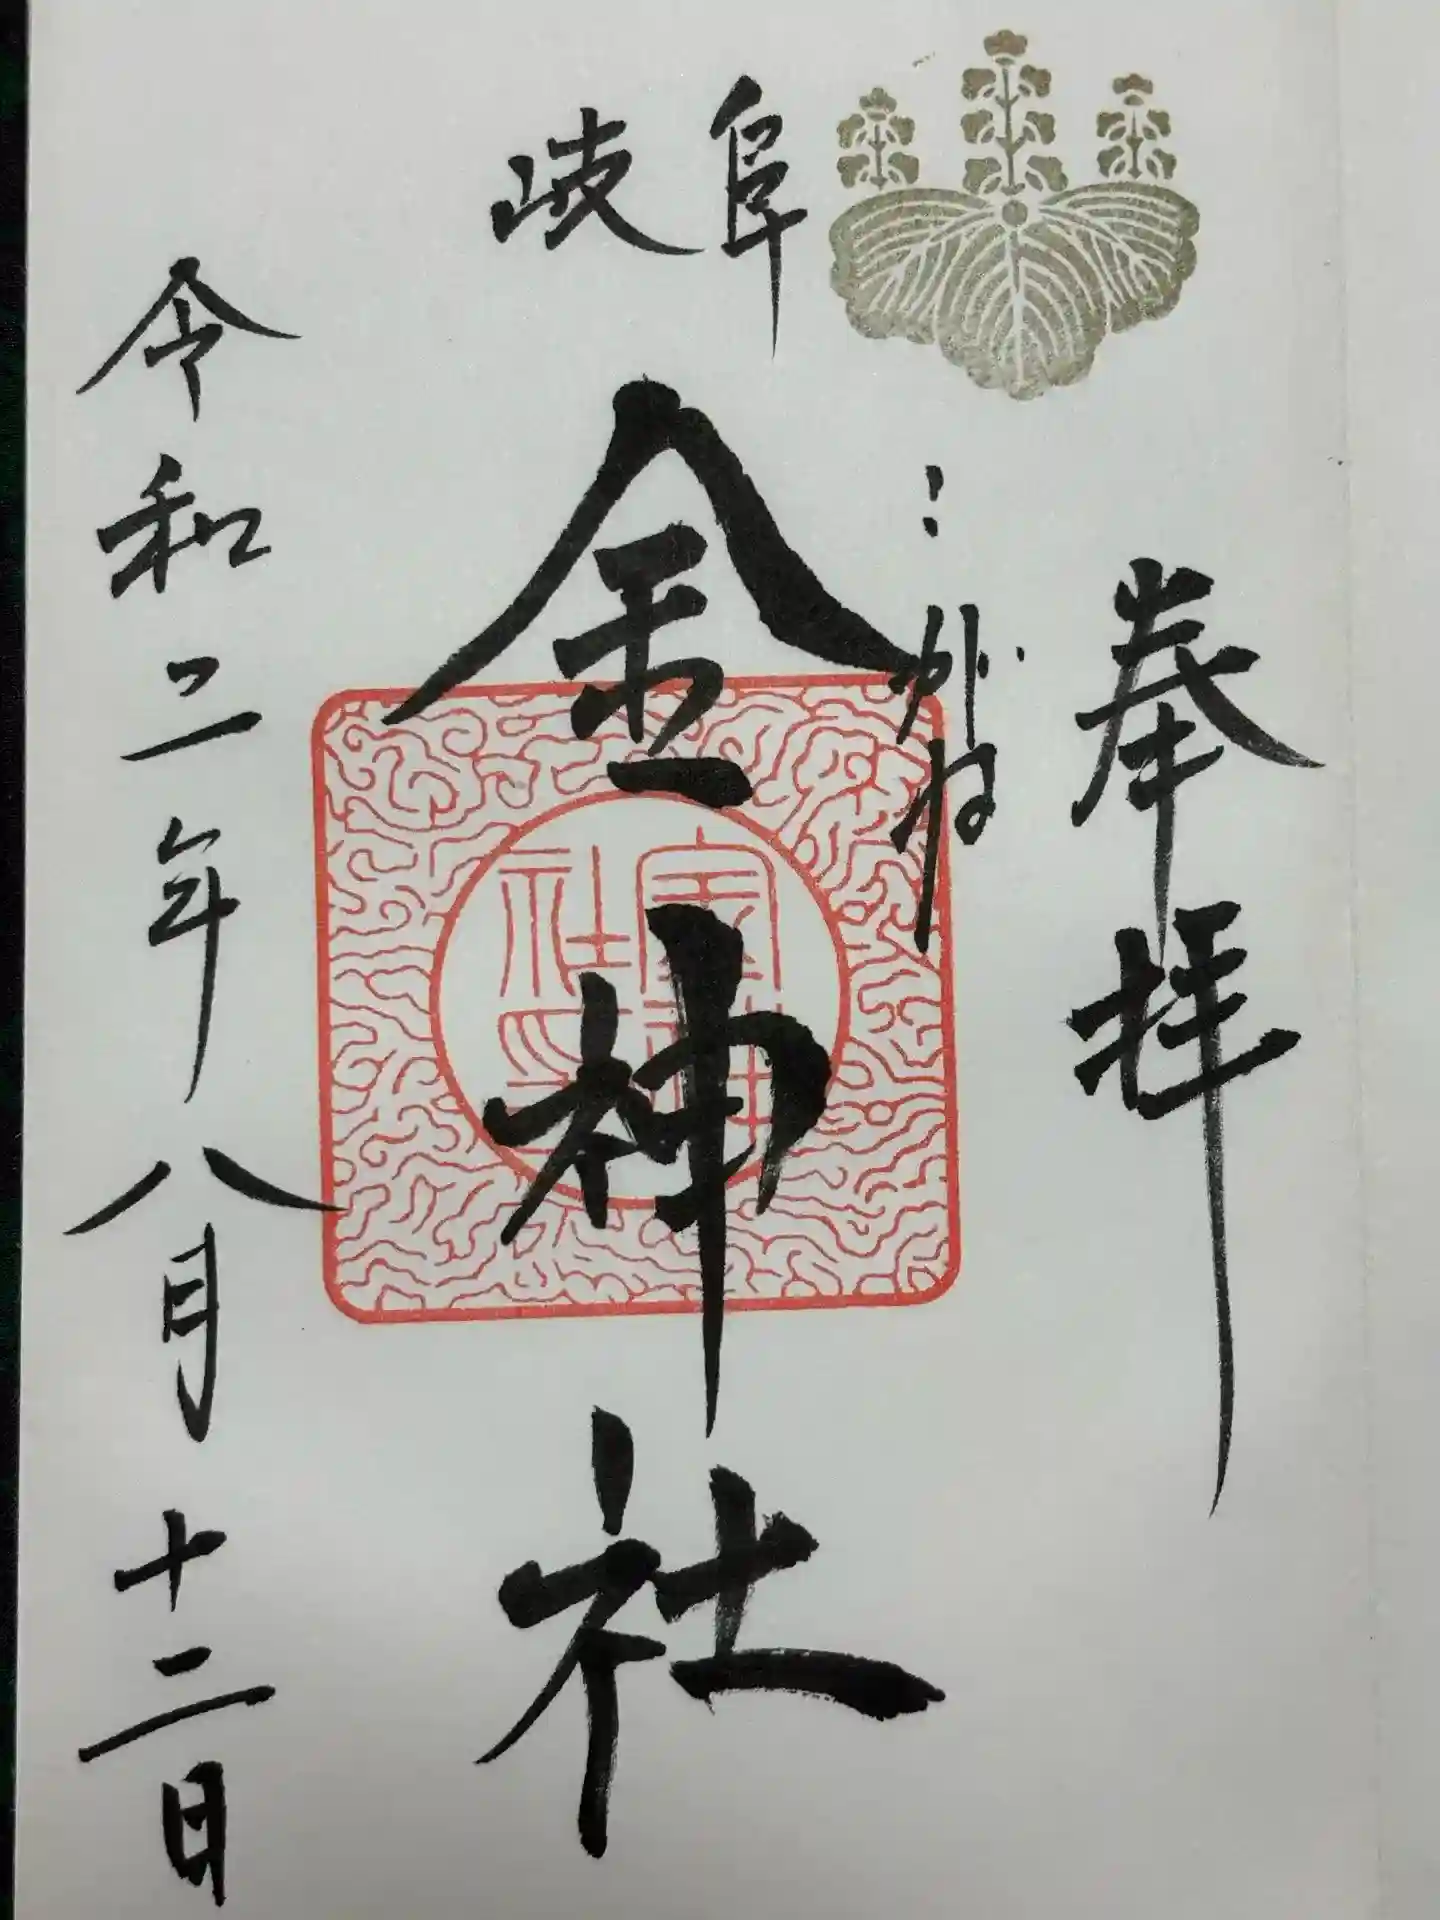 奉拝
こがね
岐阜
金神社
令和二年八月十二日